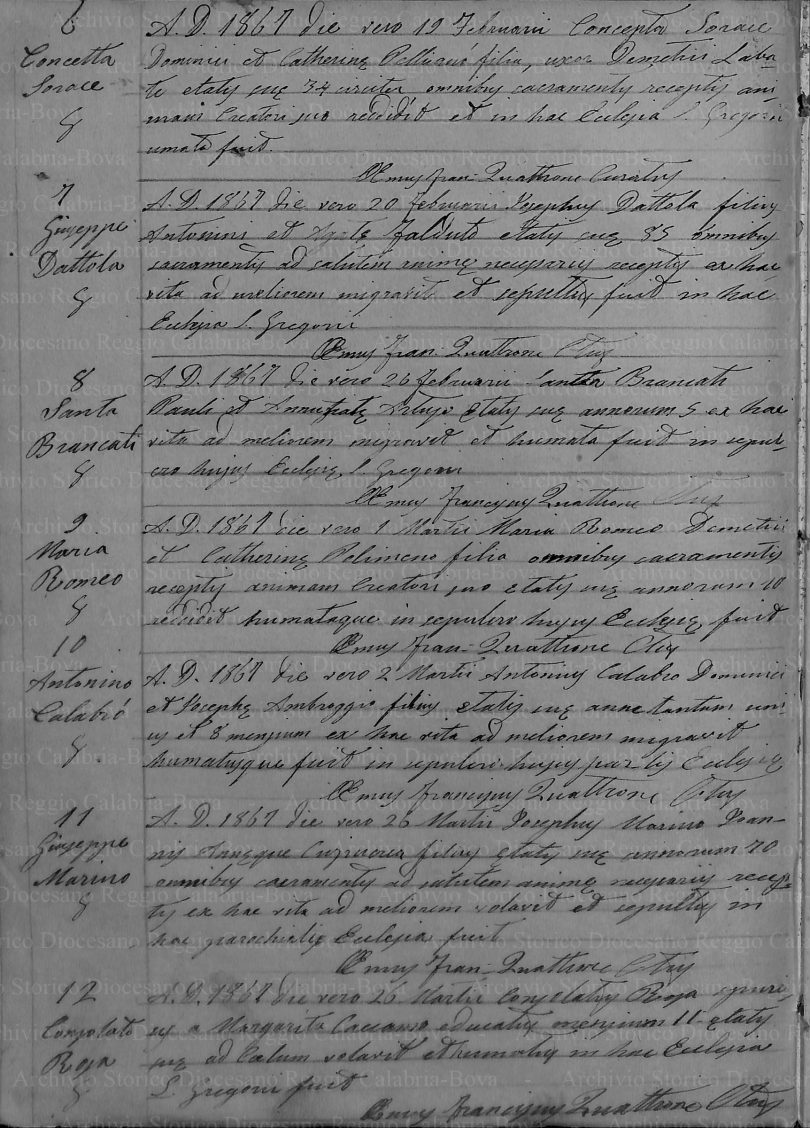 6
Concetta
Sorace
A. D. 1867 die vero 19 Februarii Concepta Sorace
Dominici et Catherinę filia, uxor Demetrii Laba-
te etatis suę 34 circiter omnibus sacramentis receptis ani-
mam Creatori suo reddidit et in hac Eclesia S. Gregorii
umata fuit.
Œmus Fran. Quattrone Curatus
7
Giuseppe
Dattola
A. D. 1867 die vero 20 Februarii Josephus Dattola filius
Antonini et Agatę Falduto etatis suę 85 omnibus
sacramentis ad salutem animę necessariis receptis ex hac
vita ad meliorem migravit et sepultus fuit in hac
Eclesia S. Gregorii
Œmus Fran. Quattrone Ctus
8
Santa
Brancati
A. D. 1867 die vero 26 Februarii Santa Brancati
Pauli et ętatis suę annorum 5 ex hac
vita ad meliorem migravit et humata fuit in sepul-
cro hujus Eclesię S. Gregorii
Œmus Franciscus Quattrone Ctus
9
Maria
Romeo
A. D. 1867 die vero 1 Martii Maria Romeo Demetrii
et Catherinę Polimeno filia omnibus sacramentis
receptis animam Creatori suo etatis suę annorum 40
reddidit humataque in sepulcro hujus Eclesię fuit
Œmus Fran. Quattrone Ctus
10
Antonino
Calabró
A. D. 1867 die vero 2 Martii Antonius Calabro Dominici
et Josephę Ambroggio filius etatis suę anno tantum uni-
us et 8 mensium ex hac vita ad meliorem migravit
humatusque fuit in sepulcro hujus Eclesię
Œmus Franciscus Quattrone Ctus
11
Giuseppe
Marino
A. D. 1867 die vero 26 Martii Josephus Marino Joan-
nis filius ętatis suę annorum 70
omnibus sacramentis ad salutem animę necessariis recep-
tis ex hac vita ad meliorem volavit et sepultus in
hac parochialis Eclesia fuit
Œmus Fran. Quattrone Ctus
12
Consolato
Roja
A. D. 1867 die vero 26 Martii Consolatus Roja spuri-
us a Margarita Caccamo educatus mensium 11 ętatis
suę ad Cœlum volavit et humatus in hac Eclesia
S. Gregorii fuit
Œmus Franciscus Quattrone Ctus
Archivio Storico Diocesano Reggio Calabria-Bova